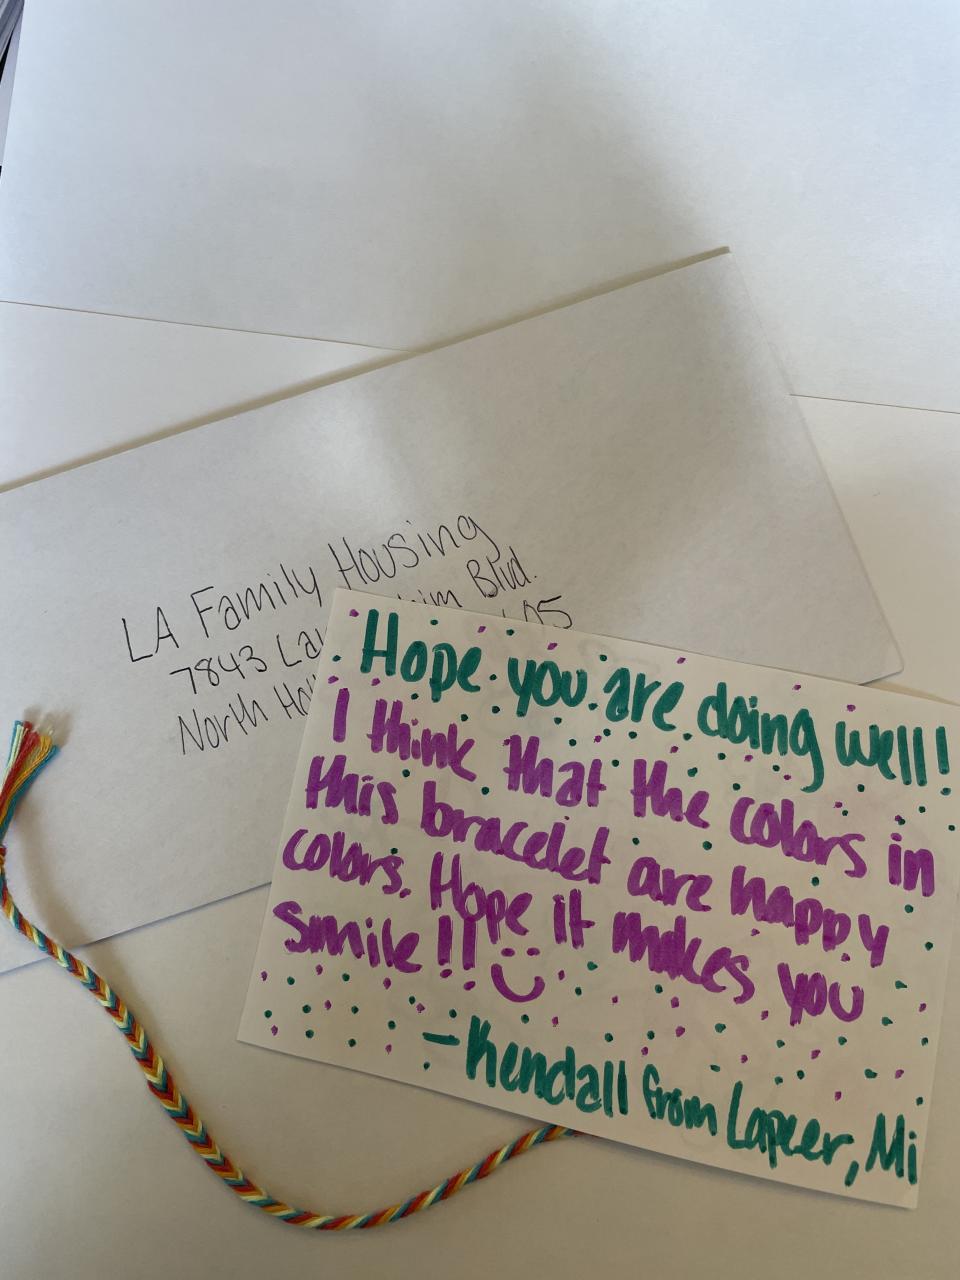 LA Family Housing
7843 Blvd.
North
Hope you are doing well!
I think that the colors in
this bracelet are happy
colors. Hope it makes you
smile!!
-Kendall from Lapeer, Mi